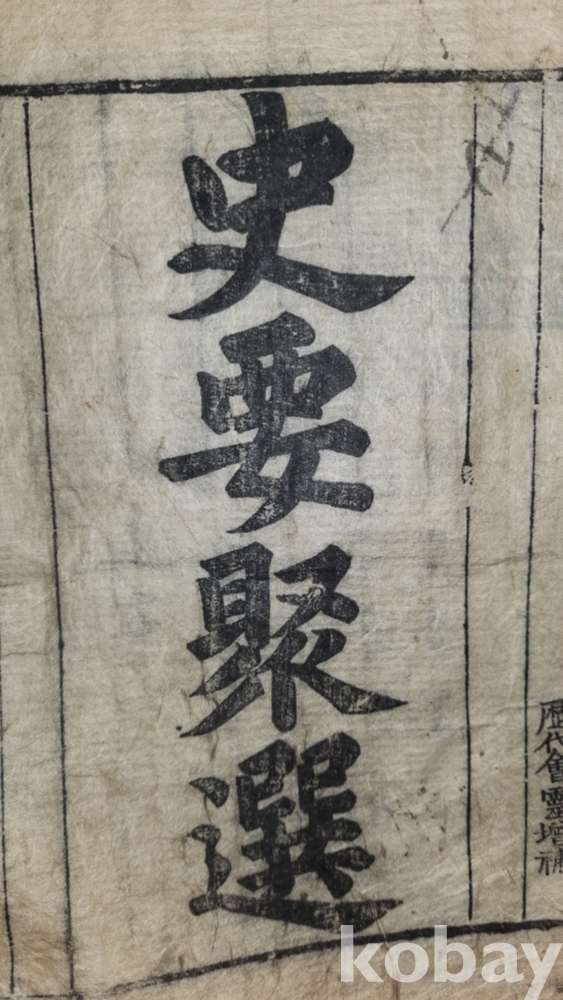 歷代會靈增補
史要聚選
kobay